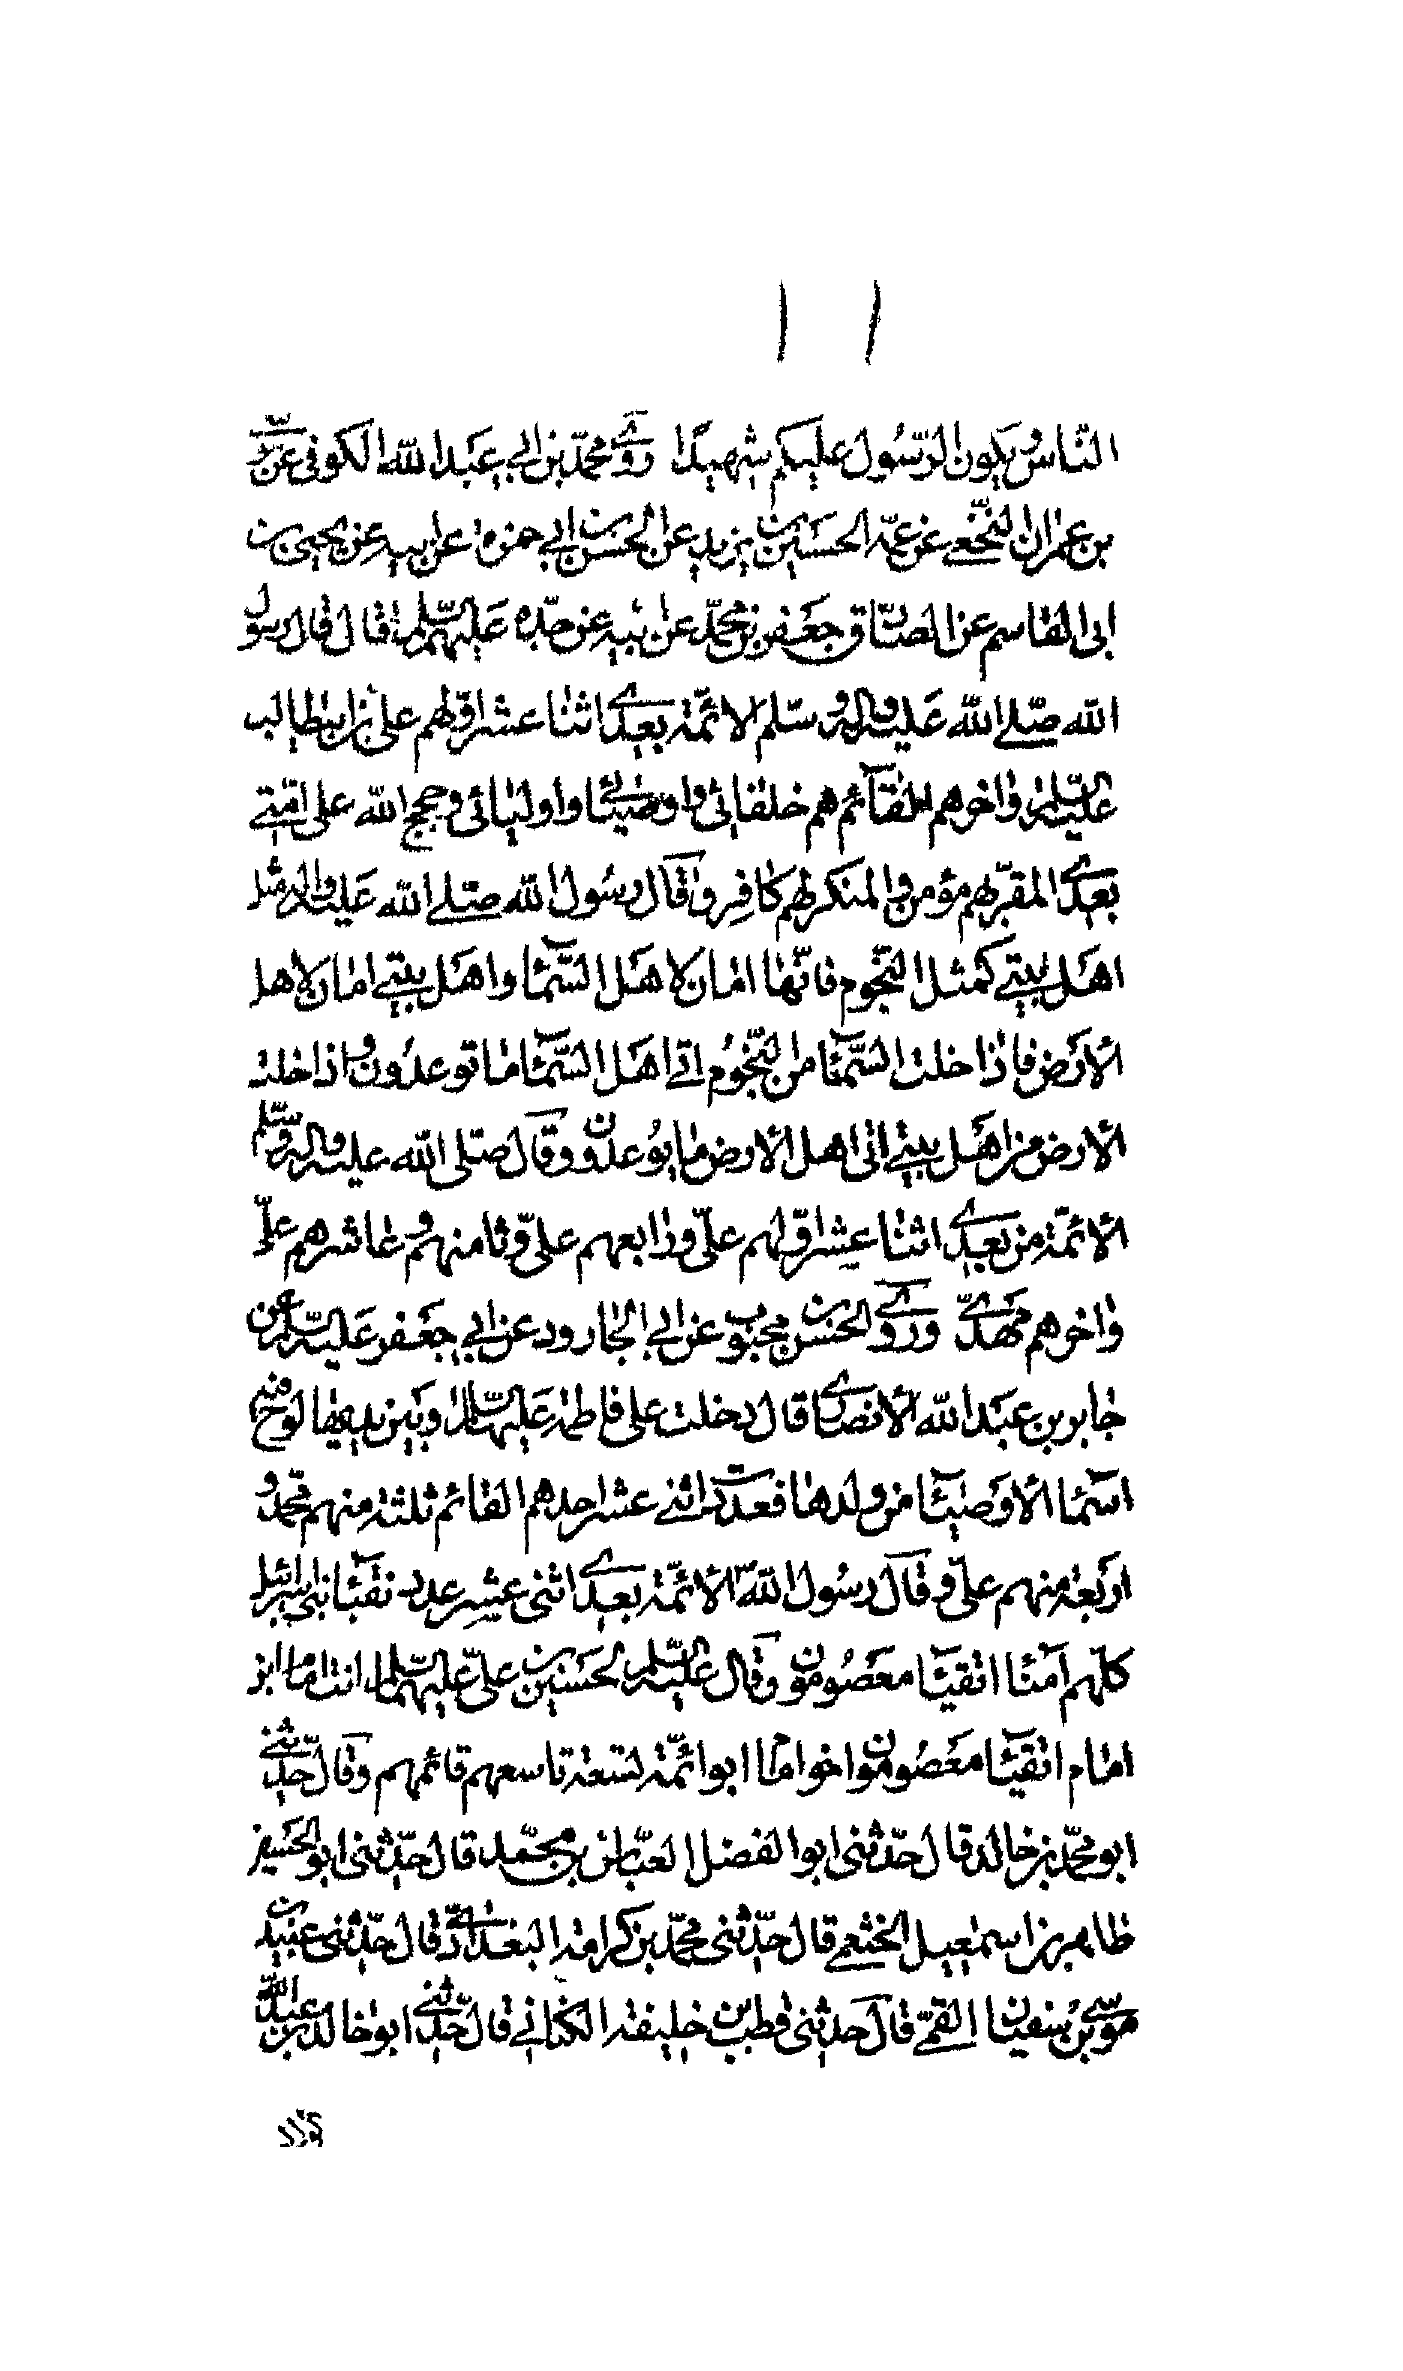 ١١
الناس ويكون الرّسُول عليكم شهيدًا روى محمّد بن ابي عبد الله الكوفي عن موسى
بن عمران النّخعي عن عمّه الحسين بن يزيد عن الحسن بن ابي حمزه عن ابيه عن يحيى بن
ابي القاسم عن الصّادق جعفر بن محمّد عن ابيه عن جدّه عليهم السّلم قال قال رسول
الله صلى الله عليه واله وسلّم الائمّة بعدى اثنا عشر اوّلهم على بن ابيطالب
عليه السّلم واخرهم القآئم هم خلفائى واوصيائى واوليائى وحجج الله على امّتى
بعدى المقرّ بهم مؤمن والمنكر لهم كافر وقال رسُول الله صلى الله عليه واله مثل
اهل بيتي كمثل النّجوم فانّها امان لاهل السّمآء واهل بيتي امان لاهل
الأرض فاذا خلت السّمآء من النّجُوم اتى اهل السّمآء ما توعدُون واذا خلت
الأرض من اهل بيتي اتى اهل الأرض ما يوُعدون وقال صلى الله عليه واله وسلّم
الأئمّة من بعدى اثنا عشر اوّلهم علىّ ورابعهم علىّ وثامنهم وعاشرهم علىّ
واخرهم مهدىّ وروى الحسن بن محبوب عن ابي الجارود عن ابي جعفر عليه السّلم عن
جابر بن عبد الله الأنصارى قال دخلت على فاطمة عليها السّلم وبين يديها لوح فيه
اسمآء الأوصيآء من ولدها فعددت اثنى عشر احدهم القائم ثلثة منهم محمّد و
اربعة منهم علىّ وقال رسُول اللهّ الأئمّة بعدى اثنى عشر عدد نقبآء بنى اسرائيل
كلّهم امنآء اتقيآء معصُومون وقال عليه السّلم للحسين بن علىّ عليهما السّلم انت امام ابن
امام اتقيآء معصُومون واخو امام ابو ائمّة تسعة تاسعهم قائمهم وقال حدّثني
ابو محمّد بن خالد قال حدّثنى ابو الفضل العبّاس بن محمّد قال حدّثنى ابو الحسين
طاهر بن اسمعيل الخثعمي قال حدّثنى محمّد بن كرامة البغدادى قال حدّثنى عبيد بن
موسى بن سفيان القمّي قال حدثنى قطب بن خليفة الكنانى قال حدّثنى ابو خالد بن عبد الله